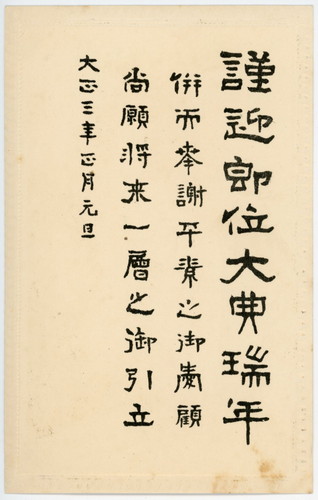 謹迎即位大典瑞年
併而奉謝平素之御愛顧
尚願将来一層之御引立
大正三年正月元旦